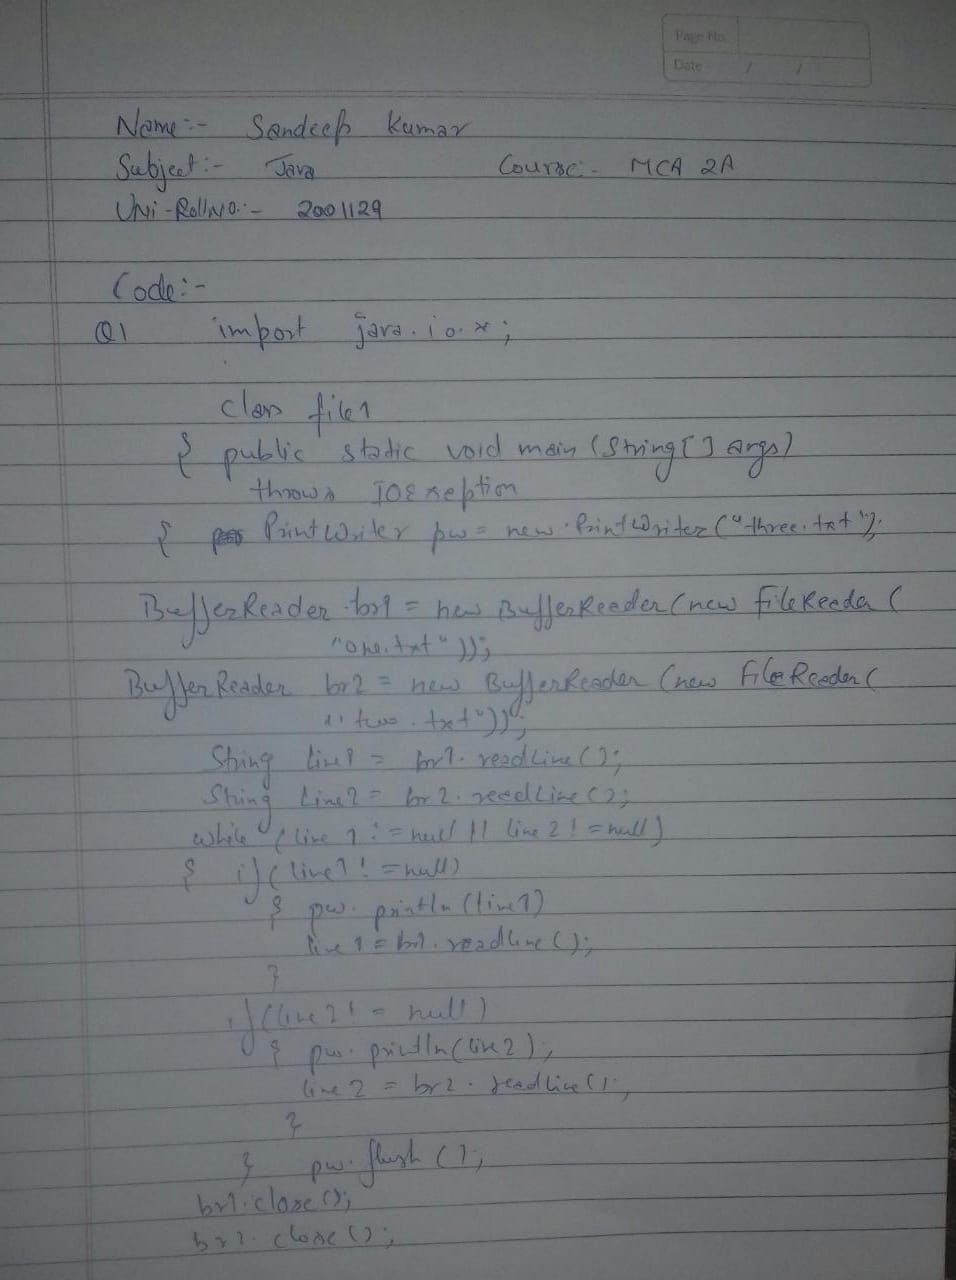 Page No.
Date / /
Name :- Sandeep Kumar
Subject :- Java Course :- MCA 2A
Uni-RollNo. :- 2001129
Code :-
Q1 import java.io.*;
class file1
{ public static void main (String[] args)
throws IOExeption
{ PrintWriter pw = new PrintWriter ("three.txt");
BufferReader br1 = new BufferReader (new fileReader (
"one.txt"));
BufferReader br2 = new BufferReader (new FileReader (
"two.txt"));
String line1 = br1.readLine();
String Line2 = br2.readLine();
while (line1 != null || line2 != null)
{ if (line1 != null)
{ pw.println (line1)
line1 = br1.readline();
}
if (line2 != null)
{ pw.println(line2);
line2 = br2.readLine();
}
} pw.flush();
br1.close();
br2.close();